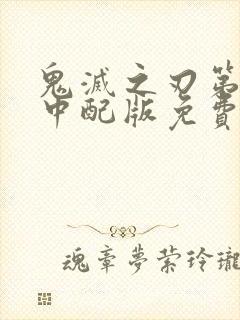 鬼滅之刃第
中配版免費
魂牽夢縈玲瓏